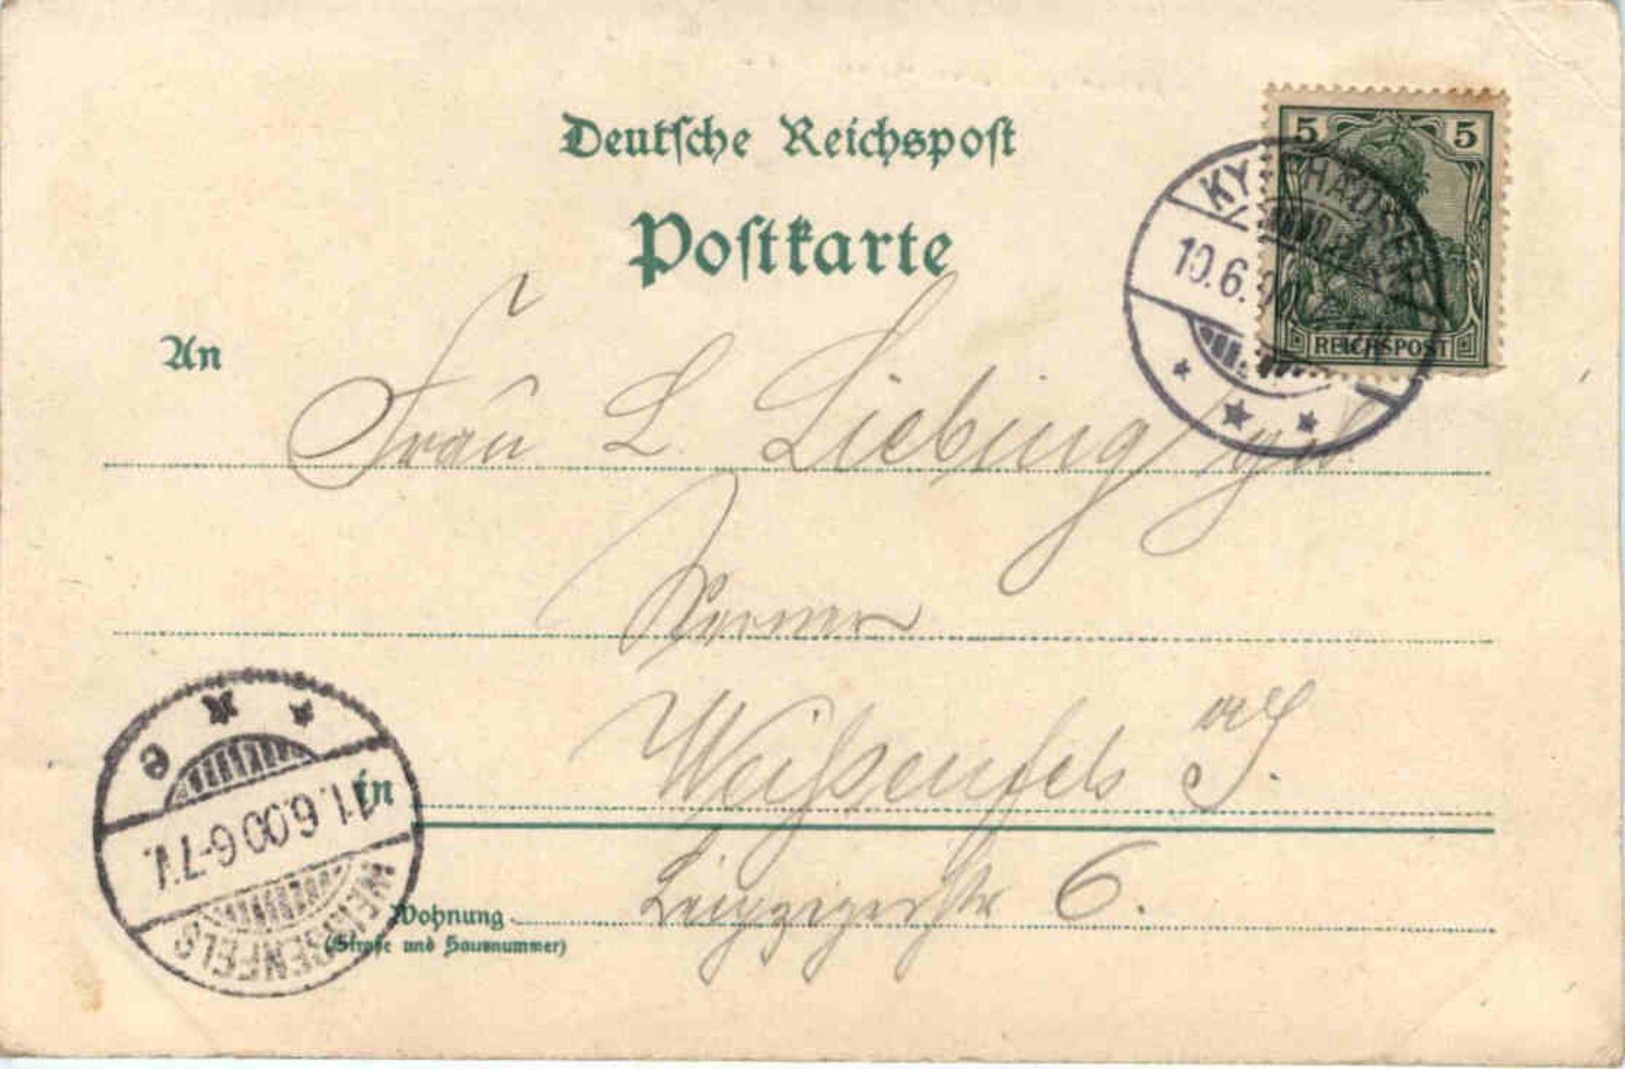 Deutsche Reichspost
Postkarte
5 5
REICHSPOST
KYFFHÄUSER
10.6.
An
Frau L. Liebing / geb
Werner
in Weißenfels a/S.
Wohnung Leipzigerstr 6.
(Straße und Hausnummer)
WEISSENFELS
11.6.00 6-7V.
e